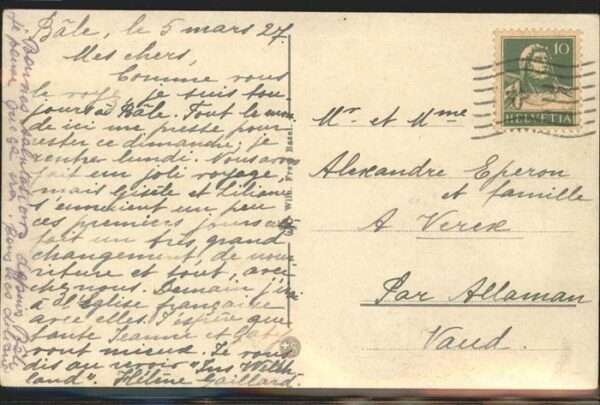 Bâle, le 5 mars 27.
Mes chers,
Comme vous
le voyez, je suis tou
jours à Bâle. Tout le mon
de ici me presse pour
rester ce dimanche, je
rentre lundi. Nous avons
fait un joli voyage,
mais Gisèle et Liliane
s'ennuient un peu
ces premiers jours
fait un très grand
changement, de nour
riture et tout, avec
chez nous. Demain j'irai
à l'église française
avec elles. J'espère que
tante Jeanne et
vont mieux. Je vous
dis au revoir "Ins Welsch
land". Hélène Gaillard.
Mr et Mme
Alexandre Eperon
et famille
A Verex
Par Allaman
Vaud.
10
HELVETIA
Wilh. Frey, Basel